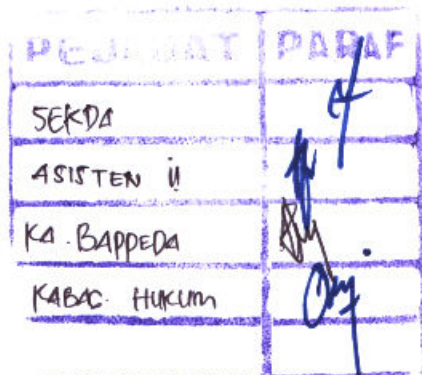 PEJABAT PARAF
SEKDA
ASISTEN II
KA. BAPPEDA
KABAG. HUKUM